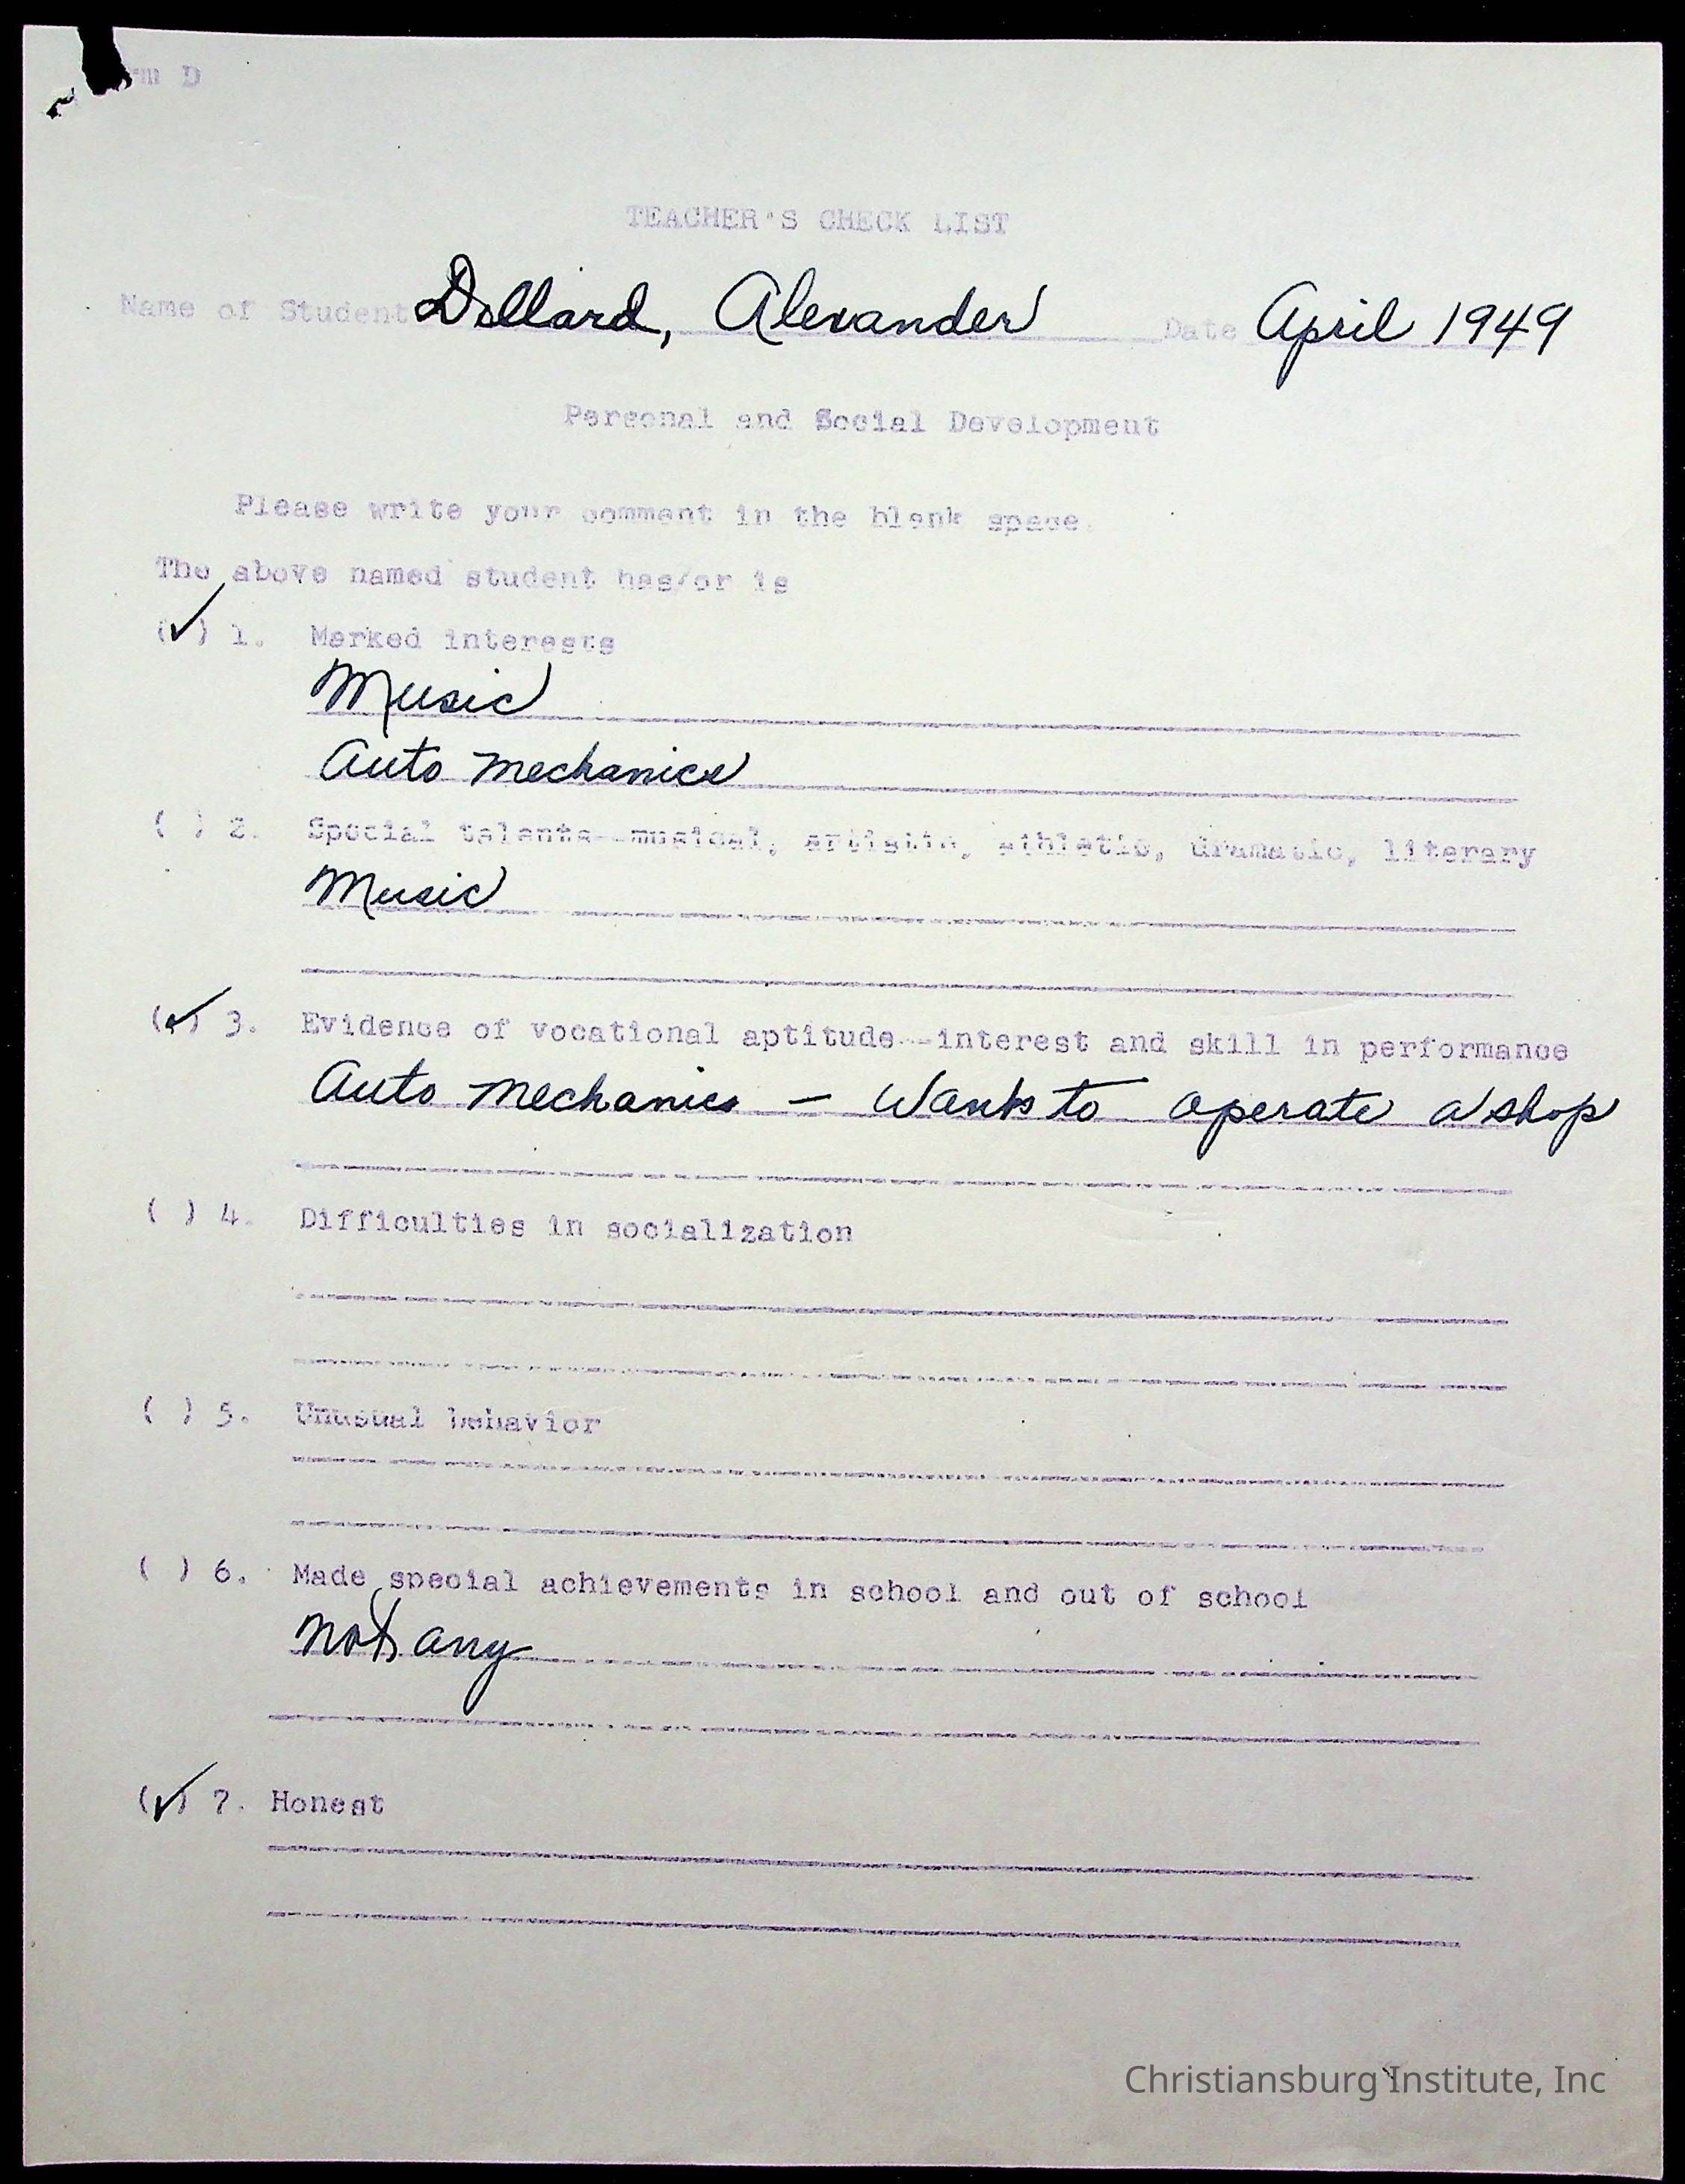 rm D
TEACHER'S CHECK LIST
Name of Student Dillard, Alexander Date April 1949
Personal and Social Development
Please write your comment in the blank space.
The above named student has/or is
(✓) 1. Marked interests
Music
Auto mechanics
( ) 2. Special talents--musical, artistic, athletic, dramatic, literary
Music
(✓) 3. Evidence of vocational aptitude--interest and skill in performance
Auto mechanics – Wants to operate a shop
( ) 4. Difficulties in socialization
( ) 5. Unusual behavior
( ) 6. Made special achievements in school and out of school
not any
(✓) 7. Honest
Christiansburg Institute, Inc